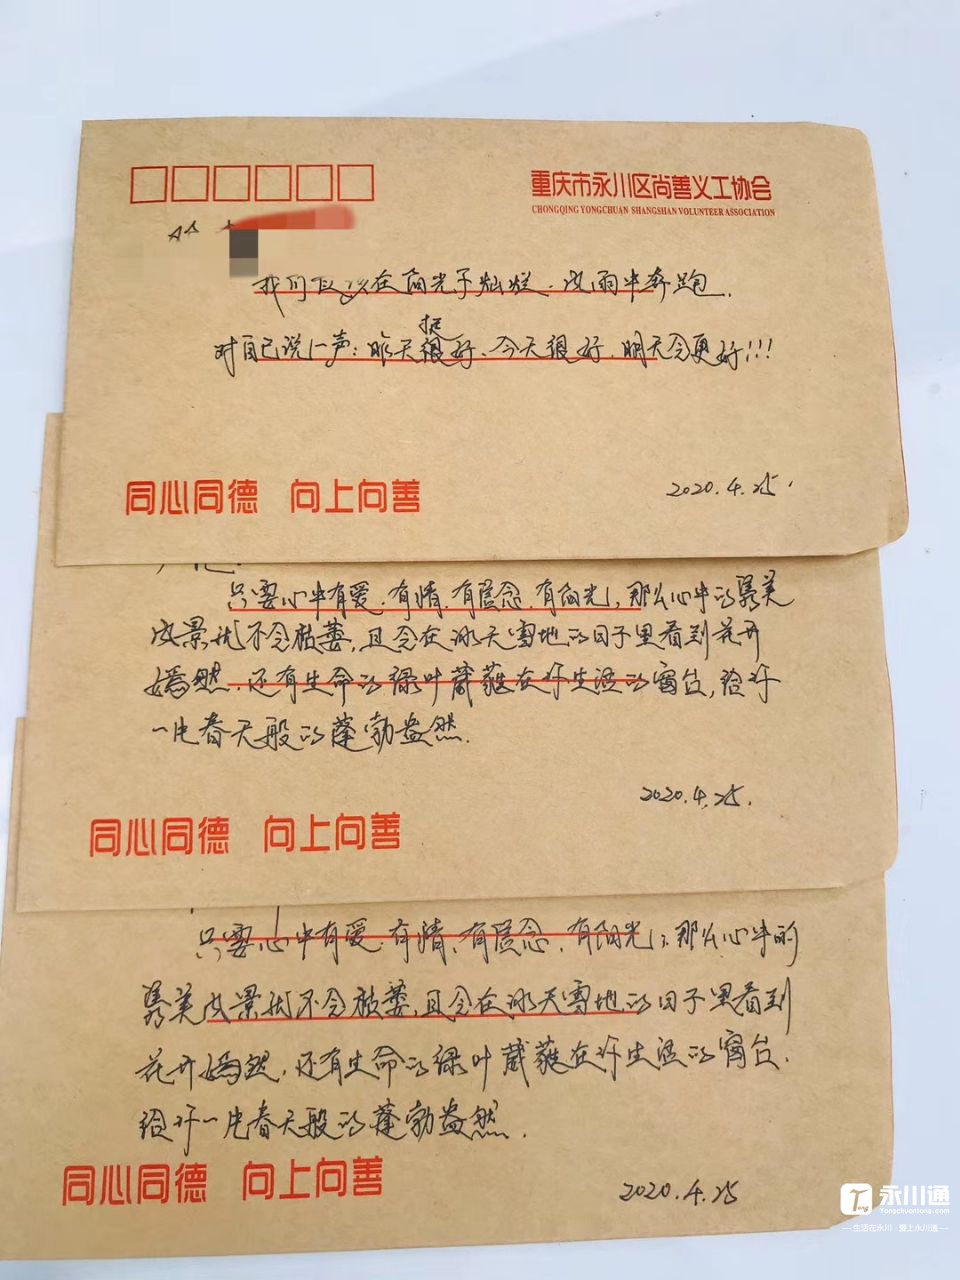 重庆市永川区尚善义工协会
CHONGQING YONGCHUAN SHANGSHAN VOLUNTEER ASSOCIATION
我们应该在阳光下灿烂、风雨中奔跑.
挺
对自己说一声：昨天很好、今天很好、明天会更好!!!
2020.4.25.
同心同德 向上向善
只要心中有爱、有情、有信念、有阳光，那么心中的秀美
风景就不会枯萎，且会在冰天雪地的日子里看到花开
嫣然，还有生命的绿叶葳蕤在你生活的窗台，给你
一片春天般的蓬勃盎然.
2020.4.25.
同心同德 向上向善
只要心中有爱、有情、有信念、有阳光，那么心中的
秀美风景就不会枯萎，且会在冰天雪地的日子里看到
花开嫣然，还有生命的绿叶葳蕤在你生活的窗台，
给你一片春天般的蓬勃盎然.
同心同德 向上向善
2020.4.25
永川通
Yongchuantong.com
生活在永川 爱上永川通